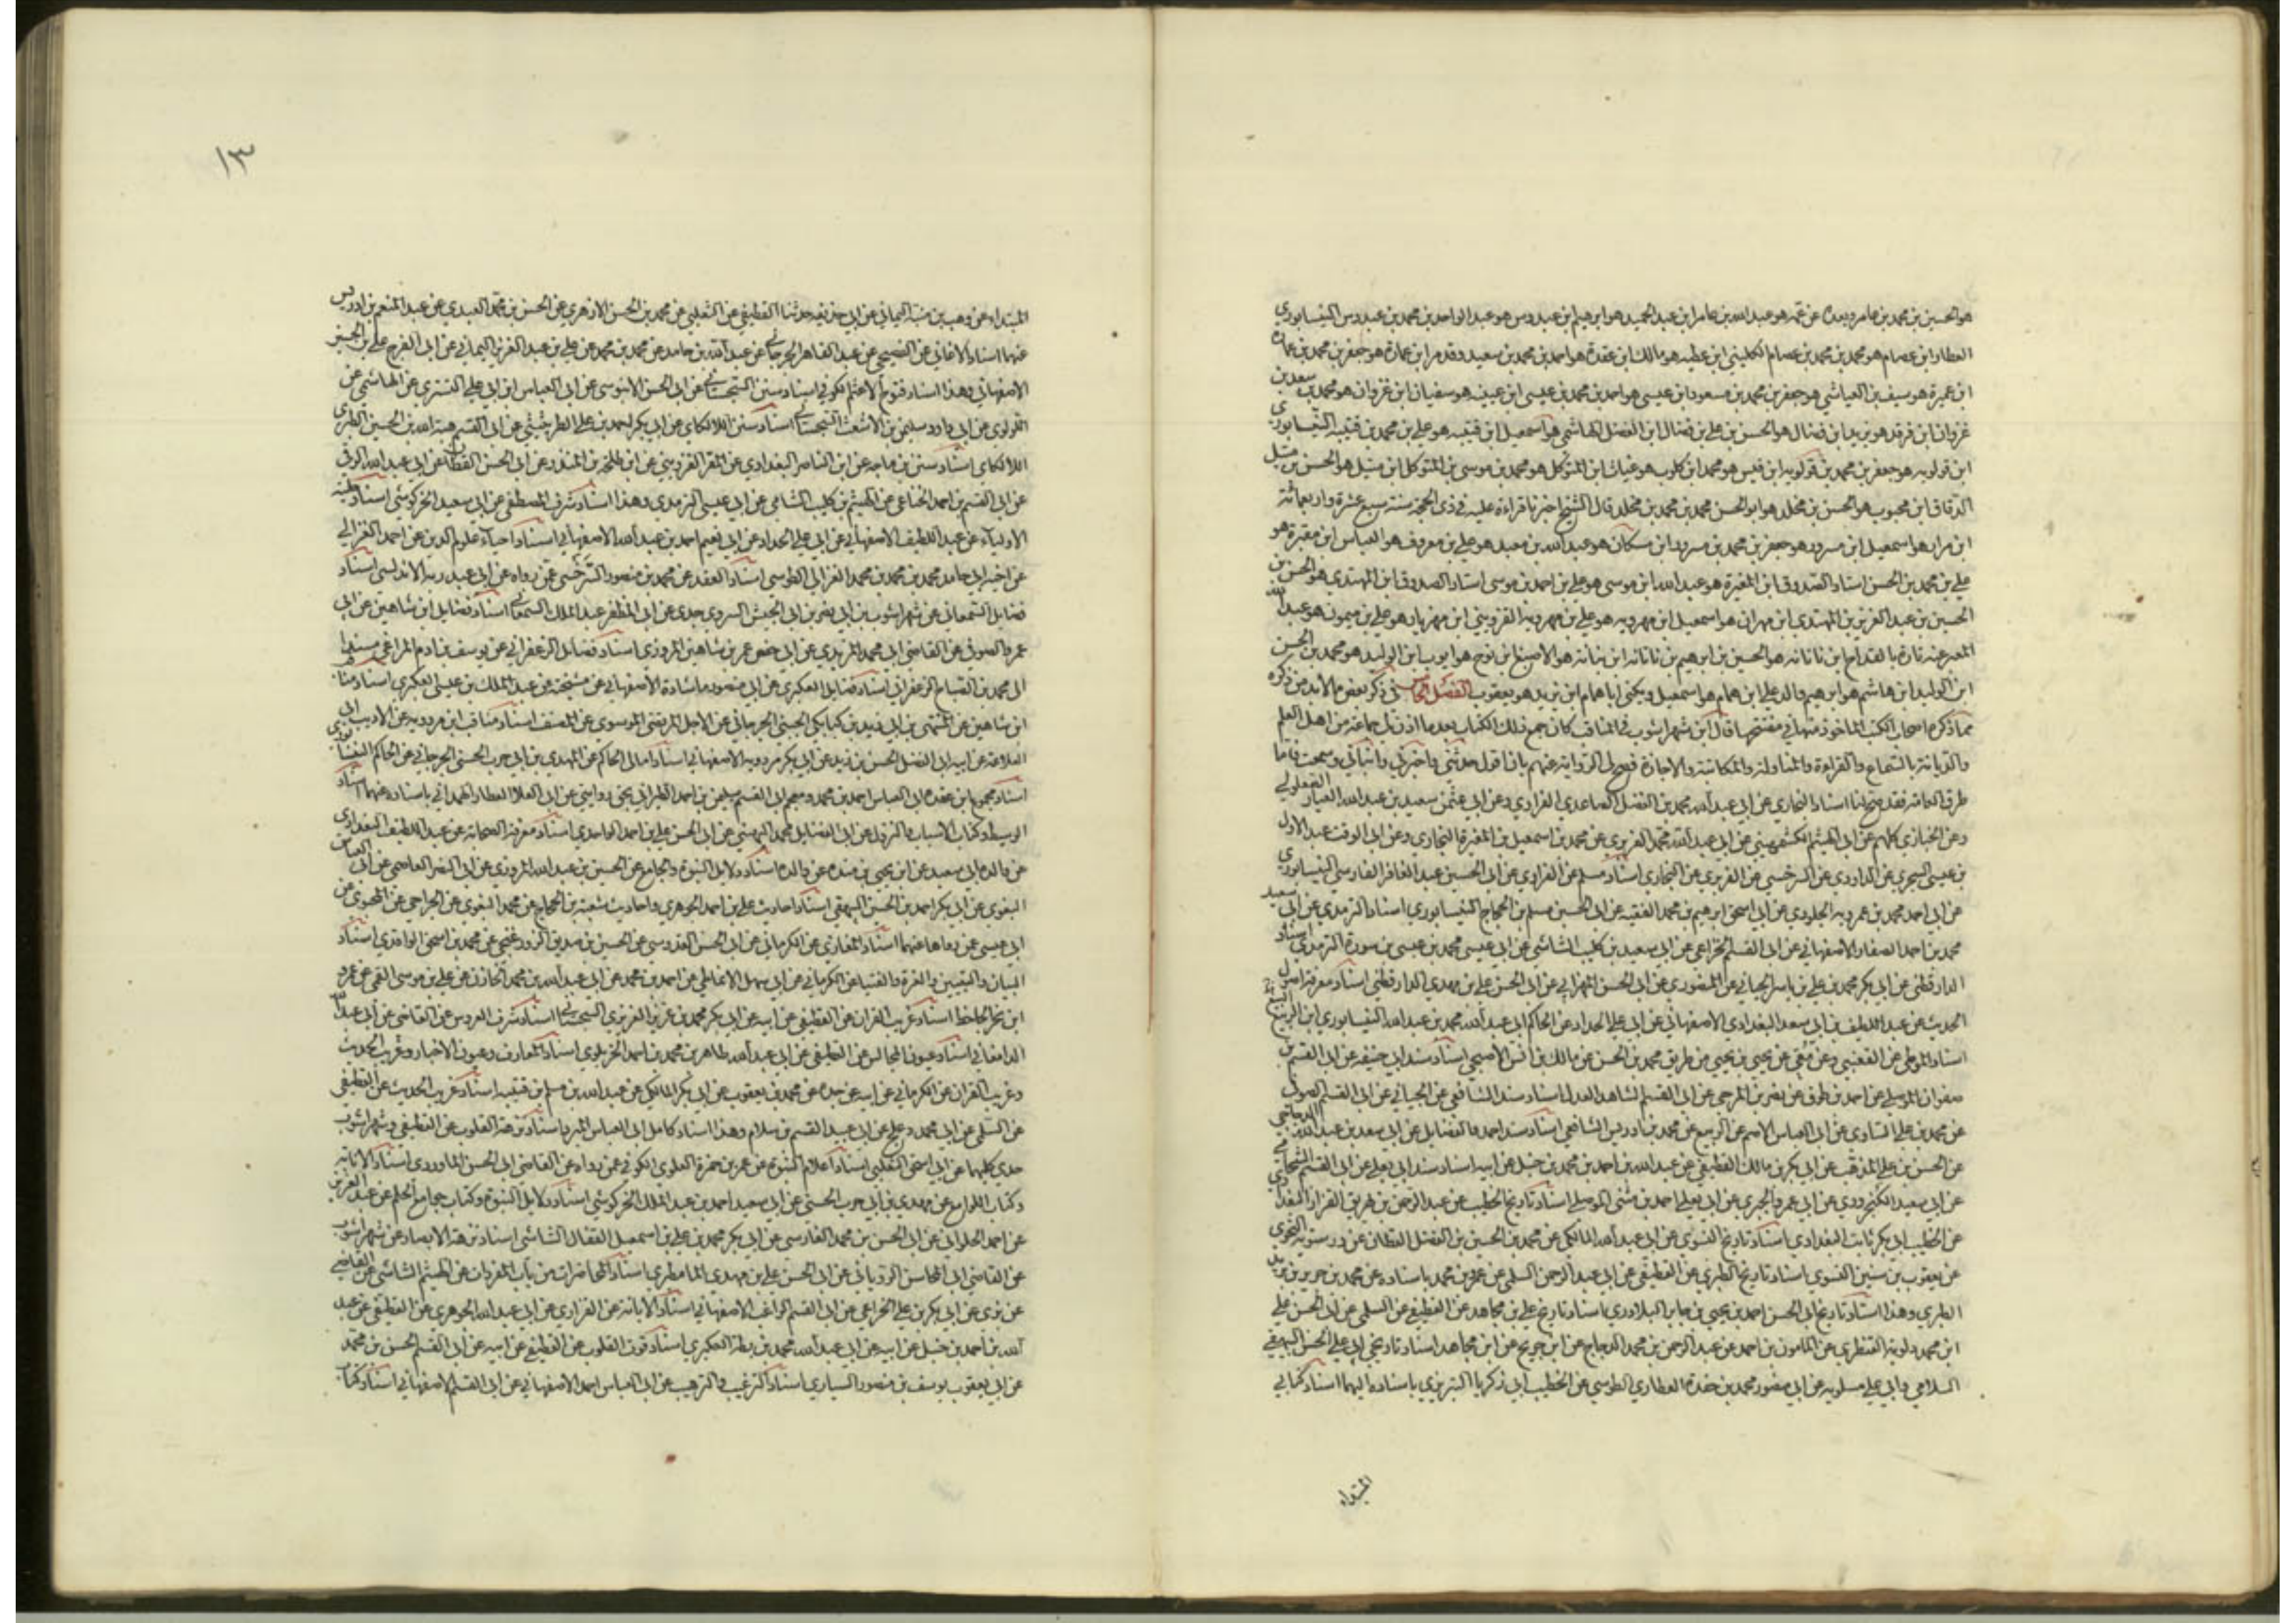 هو الحسين بن محمد بن عامر وبعده عن عمه هو عبد الله بن عامر ابن عبد الحميد هو ابرهيم ابن عبدوس هو عبد الواحد بن محمد بن عبدوس النيسابوري
العطار ابن عصام هو محمد بن محمد بن عصام الكليني ابن عطيه هو مالك ابن عقدة هو احمد بن محمد بن سعيد وقد مر ابن عمارة هو جعفر بن محمد بن عمارة
ابن عميرة هو سيف بن العياشي هو جعفر بن محمد بن مسعود ابن عيسى هو احمد بن محمد بن عيسى ابن عيينه هو سفيان ابن غزوان هو محمد بن سعيد بن
غزوان ابن فرقد هو يزيد ابن فضال هو الحسن بن علي بن فضال ابن الفضل الهاشمي هو اسمعيل ابن قتيبه هو علي بن محمد بن قتيبه النيسابوري
ابن قولويه هو جعفر بن محمد بن قولويه ابن قيس هو محمد ابن كلوب هو غياث ابن المتوكل هو محمد بن موسى بن المتوكل ابن متيل هو الحسن بن متيل
الدقاق ابن محبوب هو الحسن بن مخلد هو ابو الحسن محمد بن محمد بن مخلد قال الشيخ اخبرنا قراءة عليه في ذي الحجة سنة سبع عشرة واربعمائة
ابن مرار هو اسمعيل ابن مسرور هو جعفر بن محمد بن مسرور ابن مسكان هو عبد الله بن معبد هو علي بن معروف هو العباس ابن مقبرة هو
علي بن محمد بن الحسن استاد الصدوق ابن المغيرة هو عبد الله ابن موسى هو علي بن احمد بن موسى استاد الصدوق ابن المهتدي هو الحسن بن
الحسين بن عبد العزيز بن المهتدي ابن مهران هو اسمعيل ابن مهرويه هو علي بن مهرويه القزويني ابن مهزيار هو علي بن ميمون هو عبد الله
المعبر عنه تارة بالقداح ابن ناتانه هو الحسين بن ابرهيم بن ناتانه ابن نباته هو الاصبغ ابن نوح هو ايوب ابن الوليد هو محمد بن الحسن
ابن الوليد ابن هاشم هو ابرهيم والد علي ابن همام هو اسمعيل ويكنى ابا همام ابن يزيد هو يعقوب الفصل الخامس في ذكر بعض ما لا بد من ذكره
مما ذكره اصحاب الكتب الماخوذ منها في مفتتحها قال ابن شهراشوب في المناقب كان جمع ذلك الكتاب بعد ما اذن لي جماعة من اهل العلم
والديانة بالسماع والقراءة والمناولة والمكاتبة والاجازة فصح لي الرواية عنهم بان اقول حدثني واخبرني وانباني وسمعت فاما
طرق العامه فقد صح لنا اسناد البخاري عن ابي عبد الله محمد بن الفضل الصاعدي الفراوي وعن ابي عثمن سعيد بن عبد الله العيار الصعلوكي
وعن الخبازي كلهم عن ابي الهيثم الكشميهني عن ابي عبد الله محمد الفربري عن محمد بن اسمعيل بن المغيرة البخاري وعن ابي الوقت عبد الاول
بن عيسى السجزي عن الداودي عن السرخسي عن الفربري عن البخاري اسناد مسلم عن الفراوي عن ابي الحسين عبد الغافر الفارسي النيسابوري
عن ابي احمد محمد بن عمرويه الجلودي عن ابي اسحق ابرهيم بن محمد الفقيه عن ابي الحسين مسلم بن الحجاج النيسابوري اسناد الترمذي عن ابي سعيد
محمد بن احمد الصفار الاصفهاني عن ابي القسم الخزاعي عن ابي سعيد بن كليب الشاشي عن ابي عيسى محمد بن عيسى بن سورة الترمذي اسناد
الدارقطني عن ابي بكر محمد بن علي بن ياسر الجياني عن المنصوري عن ابي الحسن المهراني عن ابي الحسن علي بن مهدي الدارقطني اسناد معرفة اصول
الحديث عن عبد اللطيف بن ابي سعد البغدادي الاصفهاني عن ابي علي الحداد عن الحاكم ابي عبد الله محمد بن عبد الله النيسابوري ابن البيع
اسناد الموطي عن القعنبي وعن معن عن يحيى بن يحيى من طريق محمد بن الحسن عن مالك بن انس الاصبحي اسناد مسند ابي حنيفه عن ابي القسم بن
صفوان الموصلي عن احمد بن طوق عن نصر بن المرجي عن ابي القسم الشاهد العدل اسناد مسند الشافعي عن الجياني عن ابي القسم الصوفي
عن محمد بن علي الساوي عن ابي العباس الاصم عن الربيع عن محمد بن ادريس الشافعي اسناد مسند احمد والفضايل عن ابي سعد بن عبد الله الدجاجي
عن الحسن بن علي المذهب عن ابي بكر بن مالك القطيفي عن عبد الله بن احمد بن محمد بن حنبل عن ابيه اسناد مسند ابي يعلى عن ابي القسم الشحامي
عن ابي سعيد الكنجرودي عن ابي عمرو الحيري عن ابي يعلى احمد بن مثنى الموصلي اسناد تاريخ الخطيب عن عبد الرحمن بن طريق القزاز البغدادي
عن الخطيب ابي بكر ثابت البغدادي اسناد تاريخ النسوي عن ابي عبد الله المالكي عن محمد بن الحسين بن الفضل القطان عن درستويه النحوي
عن يعقوب بن سفين النسوي اسناد تاريخ الطبري عن القطيفي عن ابي عبد الرحمن السلمي عن عمرو بن محمد باسناده عن محمد بن جرير بن يزيد
الطبري وهذا اسناد تاريخ ابي الحسن احمد بن يحيى بن جابر البلاذري اسناد تاريخ علي بن مجاهد عن القطيفي عن السلمي عن ابي الحسن علي
ابن محمد دلويه القنطري عن المامون بن احمد عن عبد الرحمن بن محمد الدجاج عن ابن جريج عن ابن مجاهد اسناد تاريخي ابي علي الحسن البيهقي
السلامي وابي علي مسكويه عن ابي منصور محمد بن حفدة العطاري الطوسي عن الخطيب ابي ذكريا التبريزي باسناده اليهما اسناد كتابي
المبتداء
١٣
المبتداء عن وهب بن منبه اليماني عن ابي حذيفه حدثنا القطيفي عن الثعلبي عن محمد بن الحسن الازهري عن الحسن بن محمد العبدي عن عبد المنعم بن ادريس
عنهما اسناد الاغاني عن الفصيحي عن عبد القاهر الجرجاني عن عبد الله بن حامد عن محمد بن محمد عن علي بن عبد العزيز اليماني عن ابي الفرج علي بن الحسين
الاصفهاني وهذا اسناد فتوح الاعثم الكوفي اسناد سنن السجستاني عن ابي الحسن الابنوسي عن ابي العباس ابن ابي علي التستري عن الهاشمي عن
اللولوي عن ابي داود سليمن بن الاشعث السجستاني اسناد سنن اللالكاي عن ابي بكر احمد بن علي الطرثيثي عن ابي القسم هبة الله بن الحسين الطبري
اللالكاي اسناد سنن بن ماجه عن ابن الناصر البغدادي عن المقر القزويني عن ابن طلحة بن المنذر عن ابي الحسن القطان عن ابي عبد الله الرقي
عن ابي القسم بن احمد الخزاعي عن الهيثم بن كليب الشاشي عن ابي عيسى الترمذي وهذا اسناد شرف المصطفى عن ابي سعيد الخركوشي اسناد حلية
الاولياء عن عبد اللطيف الاصفهاني عن ابي علي الحداد عن ابي نعيم احمد بن عبد الله الاصفهاني اسناد احياء علوم الدين عن احمد الغزالي
عن اخيه ابي حامد محمد بن محمد بن محمد الغزالي الطوسي اسناد العقد عن محمد بن منصور السرخسي عمن رواه عن ابي عبد ربه الاندلسي اسناد
فضايل السمعاني عن شهراشوب بن ابي نصر بن ابي الجيش السروي جدي عن ابي المظفر عبد الملك السمعاني اسناد فضايل ابن شاهين عن ابي
عمرو الصوفي عن القاضي ابي محمد المزيدي عن ابي حفص عمر بن شاهين المروزي اسناد فضايل الزعفراني عن يوسف بن ادم المراغي مسندا
الى محمد بن الصباح الزعفراني اسناد فضايل العكبري عن ابي منصور ماشادة الاصفهاني عن مشيخته عن عبد الملك بن عيسى العكبري اسناد مناقب
ابن شاهين عن المنتهى بن ابي زيد بن كيابكي الحسيني الجرجاني عن الاجل المرتضى الموسوي عن المصنف اسناد مناقب ابن مردويه عن الاديب ابي
العلا عن ابيه ابي الفضل الحسن بن زيد عن ابي بكر مردويه الاصفهاني اسناد امالي الحاكم عن المهدي بن ابي حرب الحسني الجرجاني عن الحاكم النيسابوري
اسناد مجموع ابن عقده ابي العباس احمد بن محمد ومعجم ابي القسم سليمن بن احمد الطبراني بحق روايتي عن ابي العلا العطار الهمداني باسناده عنهما اسناد
الوسيط وكتاب الاسباب والنزول عن ابي الفضايل محمد البهيني عن ابي الحسن علي بن احمد الواحدي اسناد معرفة الصحابة عن عبد اللطيف البغدادي
عن والده ابي سعيد عن ابن يحيى بن منده عن والده اسناد دلايل النبوة والجامع عن الحسين بن عبد الله المروزي عن ابي النصر العاصمي عن ابي العباس
البغوي عن ابي بكر احمد بن الحسن البيهقي اسناد احاديث علي بن احمد الجوهري واحاديث شعبة بن الحجاج عن محمد البغوي عن الجراحي عن المحبوبي عن
ابي عيسى عمن رواها عنهما اسناد المغازي عن الكرماني عن ابي الحسن القدوسي عن الحسين بن صديق الوزورغنجي عن محمد بن اسحق الواقدي اسناد
البيان والتبيين والغرة والفتيا عن الكرماني عن ابي سهل الانماطي عن احمد بن محمد عن ابي عبد الله بن محمد الخازن عن علي بن موسى القمي عن عمرو
ابن بحر الجاحظ اسناد غريب القران عن القطيفي عن ابيه عن ابي بكر محمد بن عزيز العزيزي السجستاني اسناد شرف العروس عن القاضي عن ابي عبد الله
الدامغاني اسناد عيون المجالس عن القطيفي عن ابي عبد الله طاهر بن محمد بن احمد الخريلوي اسناد المعارف وعيون الاخبار وغريب الحديث
وغريب القران عن الكرماني عن ابيه عن جده عن محمد بن يعقوب عن ابي بكر المالكي عن عبد الله بن مسلم بن قتيبه اسناد غريب الحديث عن القطيفي
عن السلمي عن ابي محمد دعلج عن ابي عبيد القسم بن سلام وهذا اسناد كامل ابي العباس المبرد اسناد نزهة القلوب عن القطيفي وشهراشوب
جدي كليهما عن ابي اسحق الثعلبي اسناد اعلام النبوة عن عمر بن حمزة العلوي الكوفي عمن رواه عن القاضي ابي الحسن الماوردي اسناد الابانة
وكتاب اللوامع عن مهدي بن ابي حرب الحسني عن ابي سعيد احمد بن عبد الملك الخركوشي اسناد دلايل النبوة وكتاب جوامع الحلم عن عبد العزيز
عن احمد الحلواني عن ابي الحسن بن محمد الفارسي عن ابي بكر محمد بن علي بن اسمعيل القفال الشاشي اسناد نزهة الابصار عن شهراشوب
عن القاضي ابي المحاسن الروياني عن ابي الحسن علي بن مهدي المامطيري اسناد المحاضرات من باب المفردات عن الهيثم الشاشي عن القاضي
عن بزي عن ابي بكر بن علي الخزاعي عن ابي القسم الراغب الاصفهاني اسناد الابانة عن الفزاري عن ابي عبد الله الجوهري عن القطيفي عن عبد
الله بن احمد بن حنبل عن ابيه عن ابي عبد الله محمد بن بطة العكبري اسناد قوت القلوب عن القطيفي عن ابيه عن ابي القسم الحسن بن محمد
عن ابي يعقوب يوسف بن منصور السياري اسناد الترغيب والترهيب عن ابي العباس احمد الاصفهاني عن ابي القسم الاصفهاني اسناد كتاب